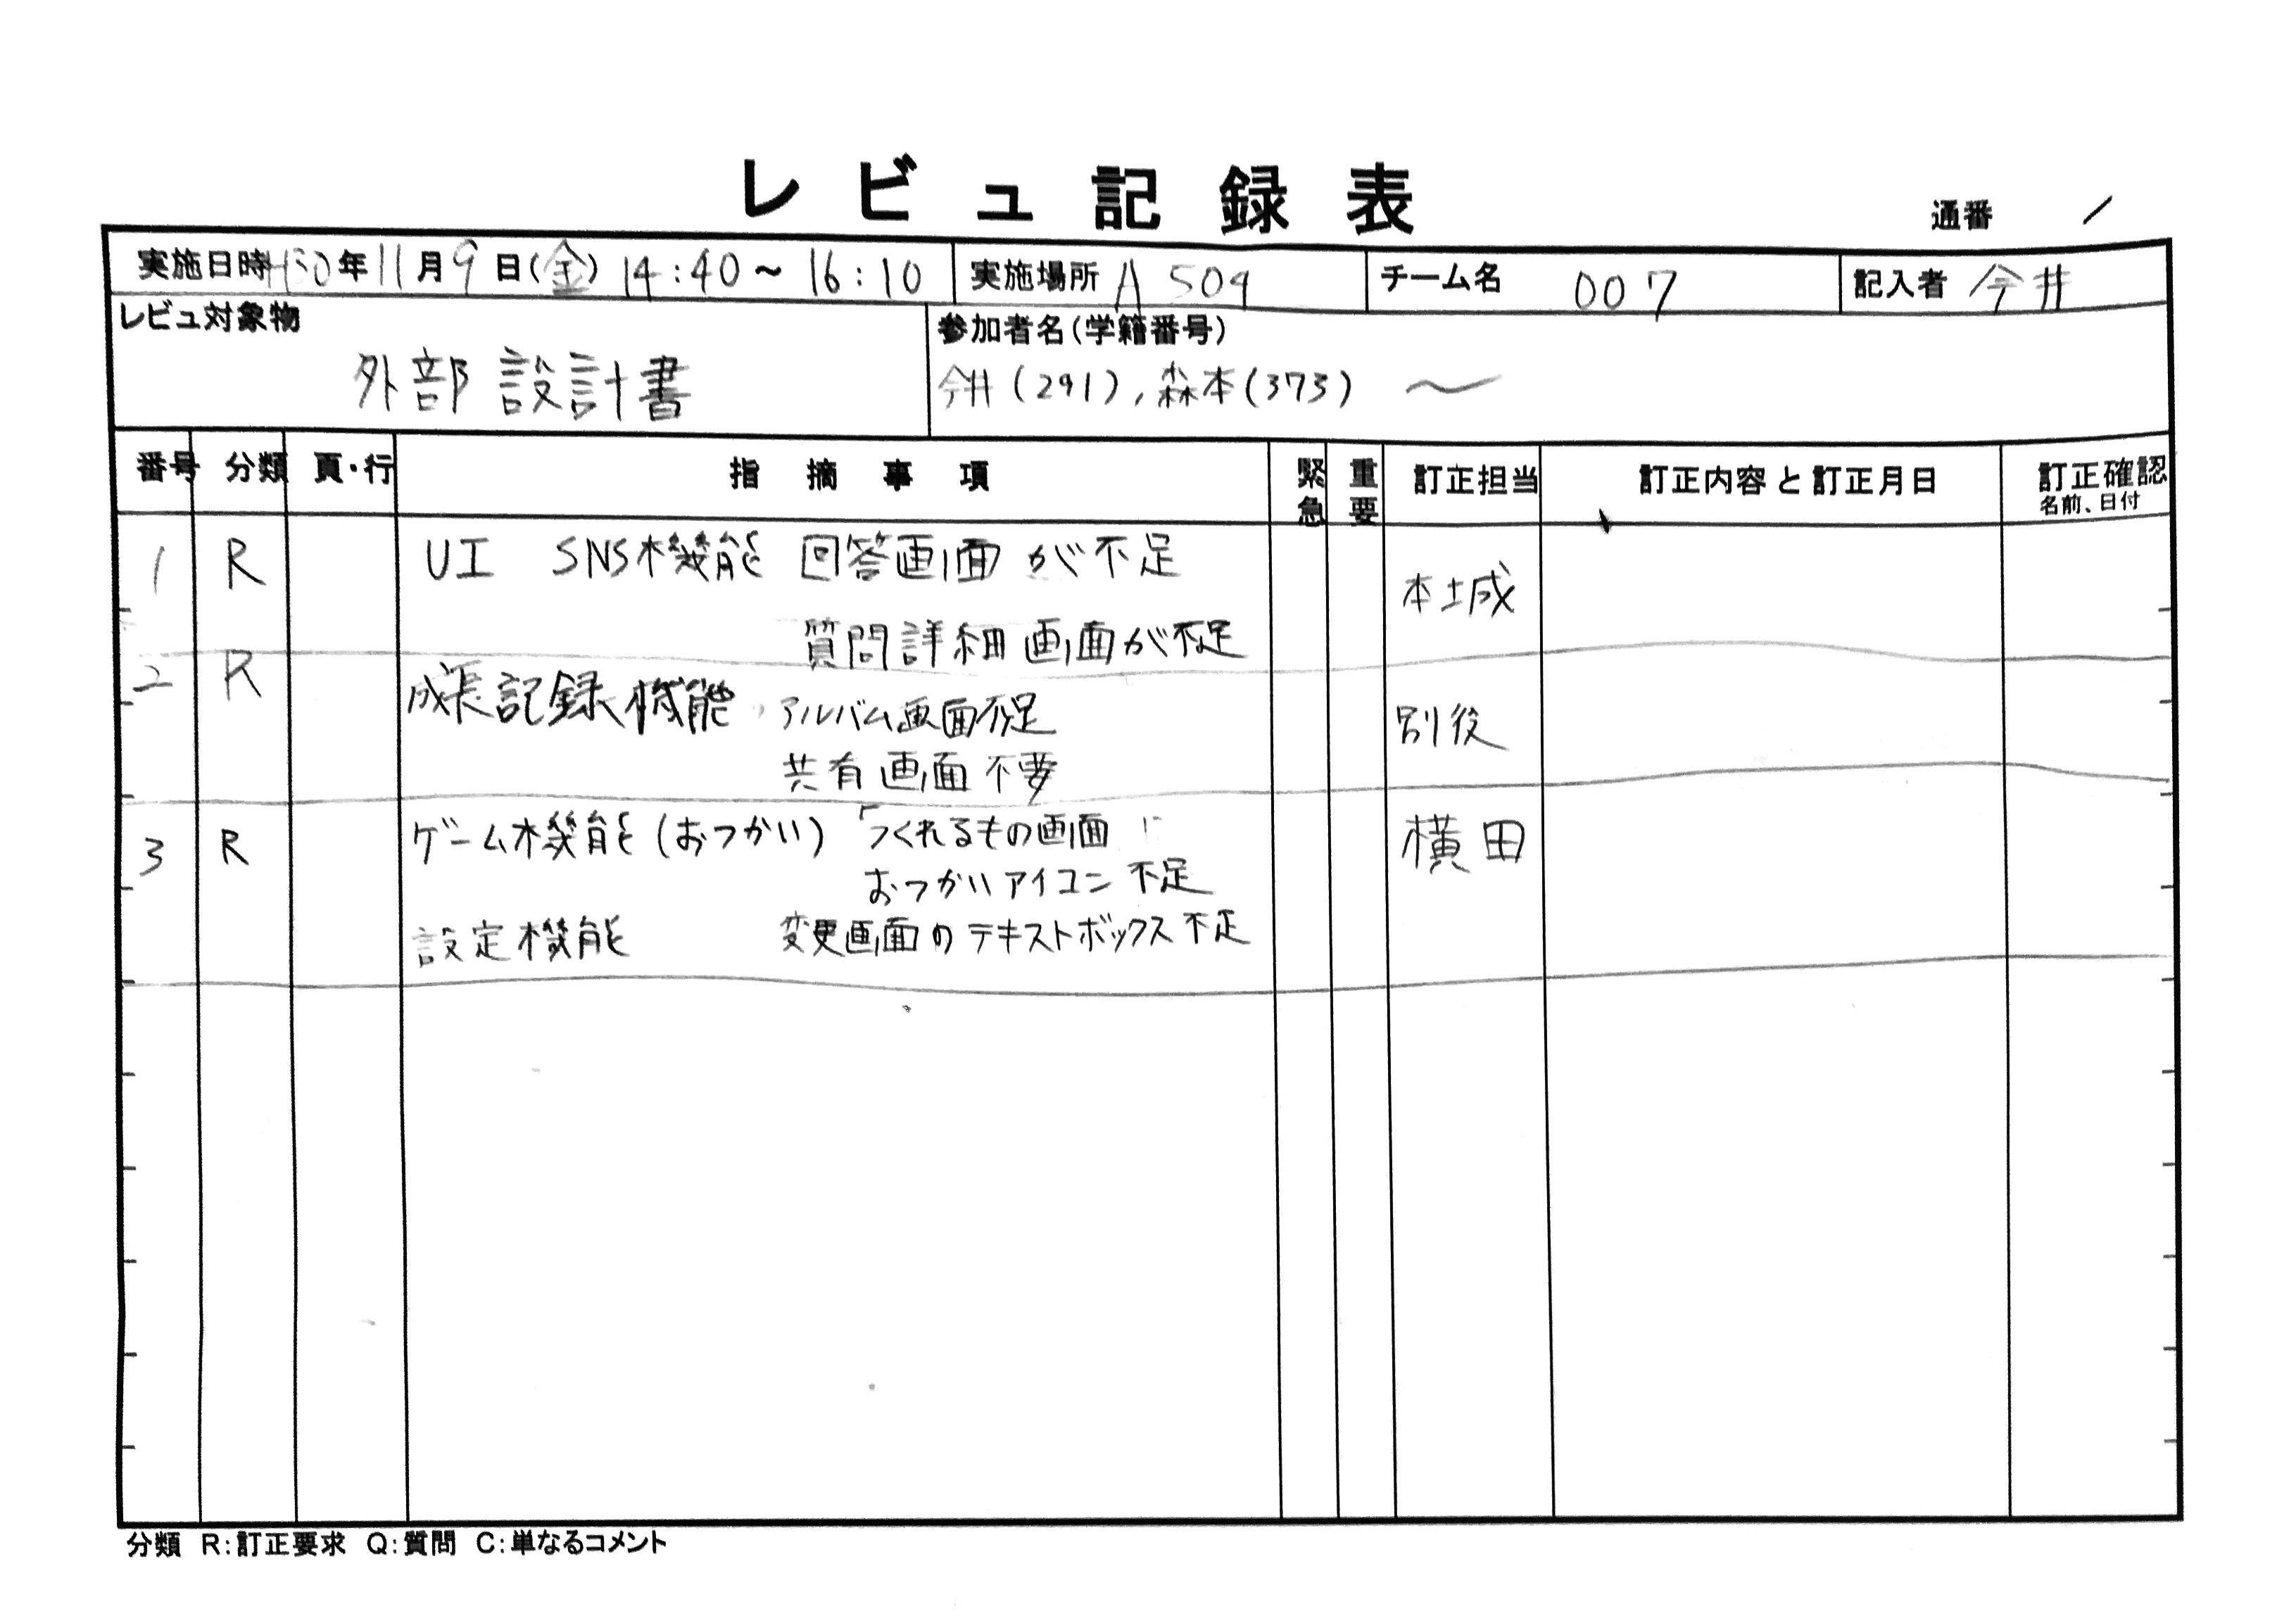 レビュ記録表
通番 1
実施日時 H30年11月9日(金) 14:40~16:10 実施場所 A504 チーム名 007 記入者 今井
レビュ対象物 参加者名(学籍番号)
外部設計書 今井(291),森本(373) 〜
番号 分類 頁・行 指摘事項 緊急 重要 訂正担当 訂正内容と訂正月日 訂正確認
名前、日付
1 R UI SNS機能 回答画面が不足 本城
質問詳細画面が不足
2 R 成長記録機能 アルバム画面不足 別役
共有画面不要
3 R ゲーム機能(おつかい) 「つくれるもの画面 に 横田
おつかいアイコン不足
設定機能 変更画面のテキストボックス不足
分類 R:訂正要求 Q:質問 C:単なるコメント